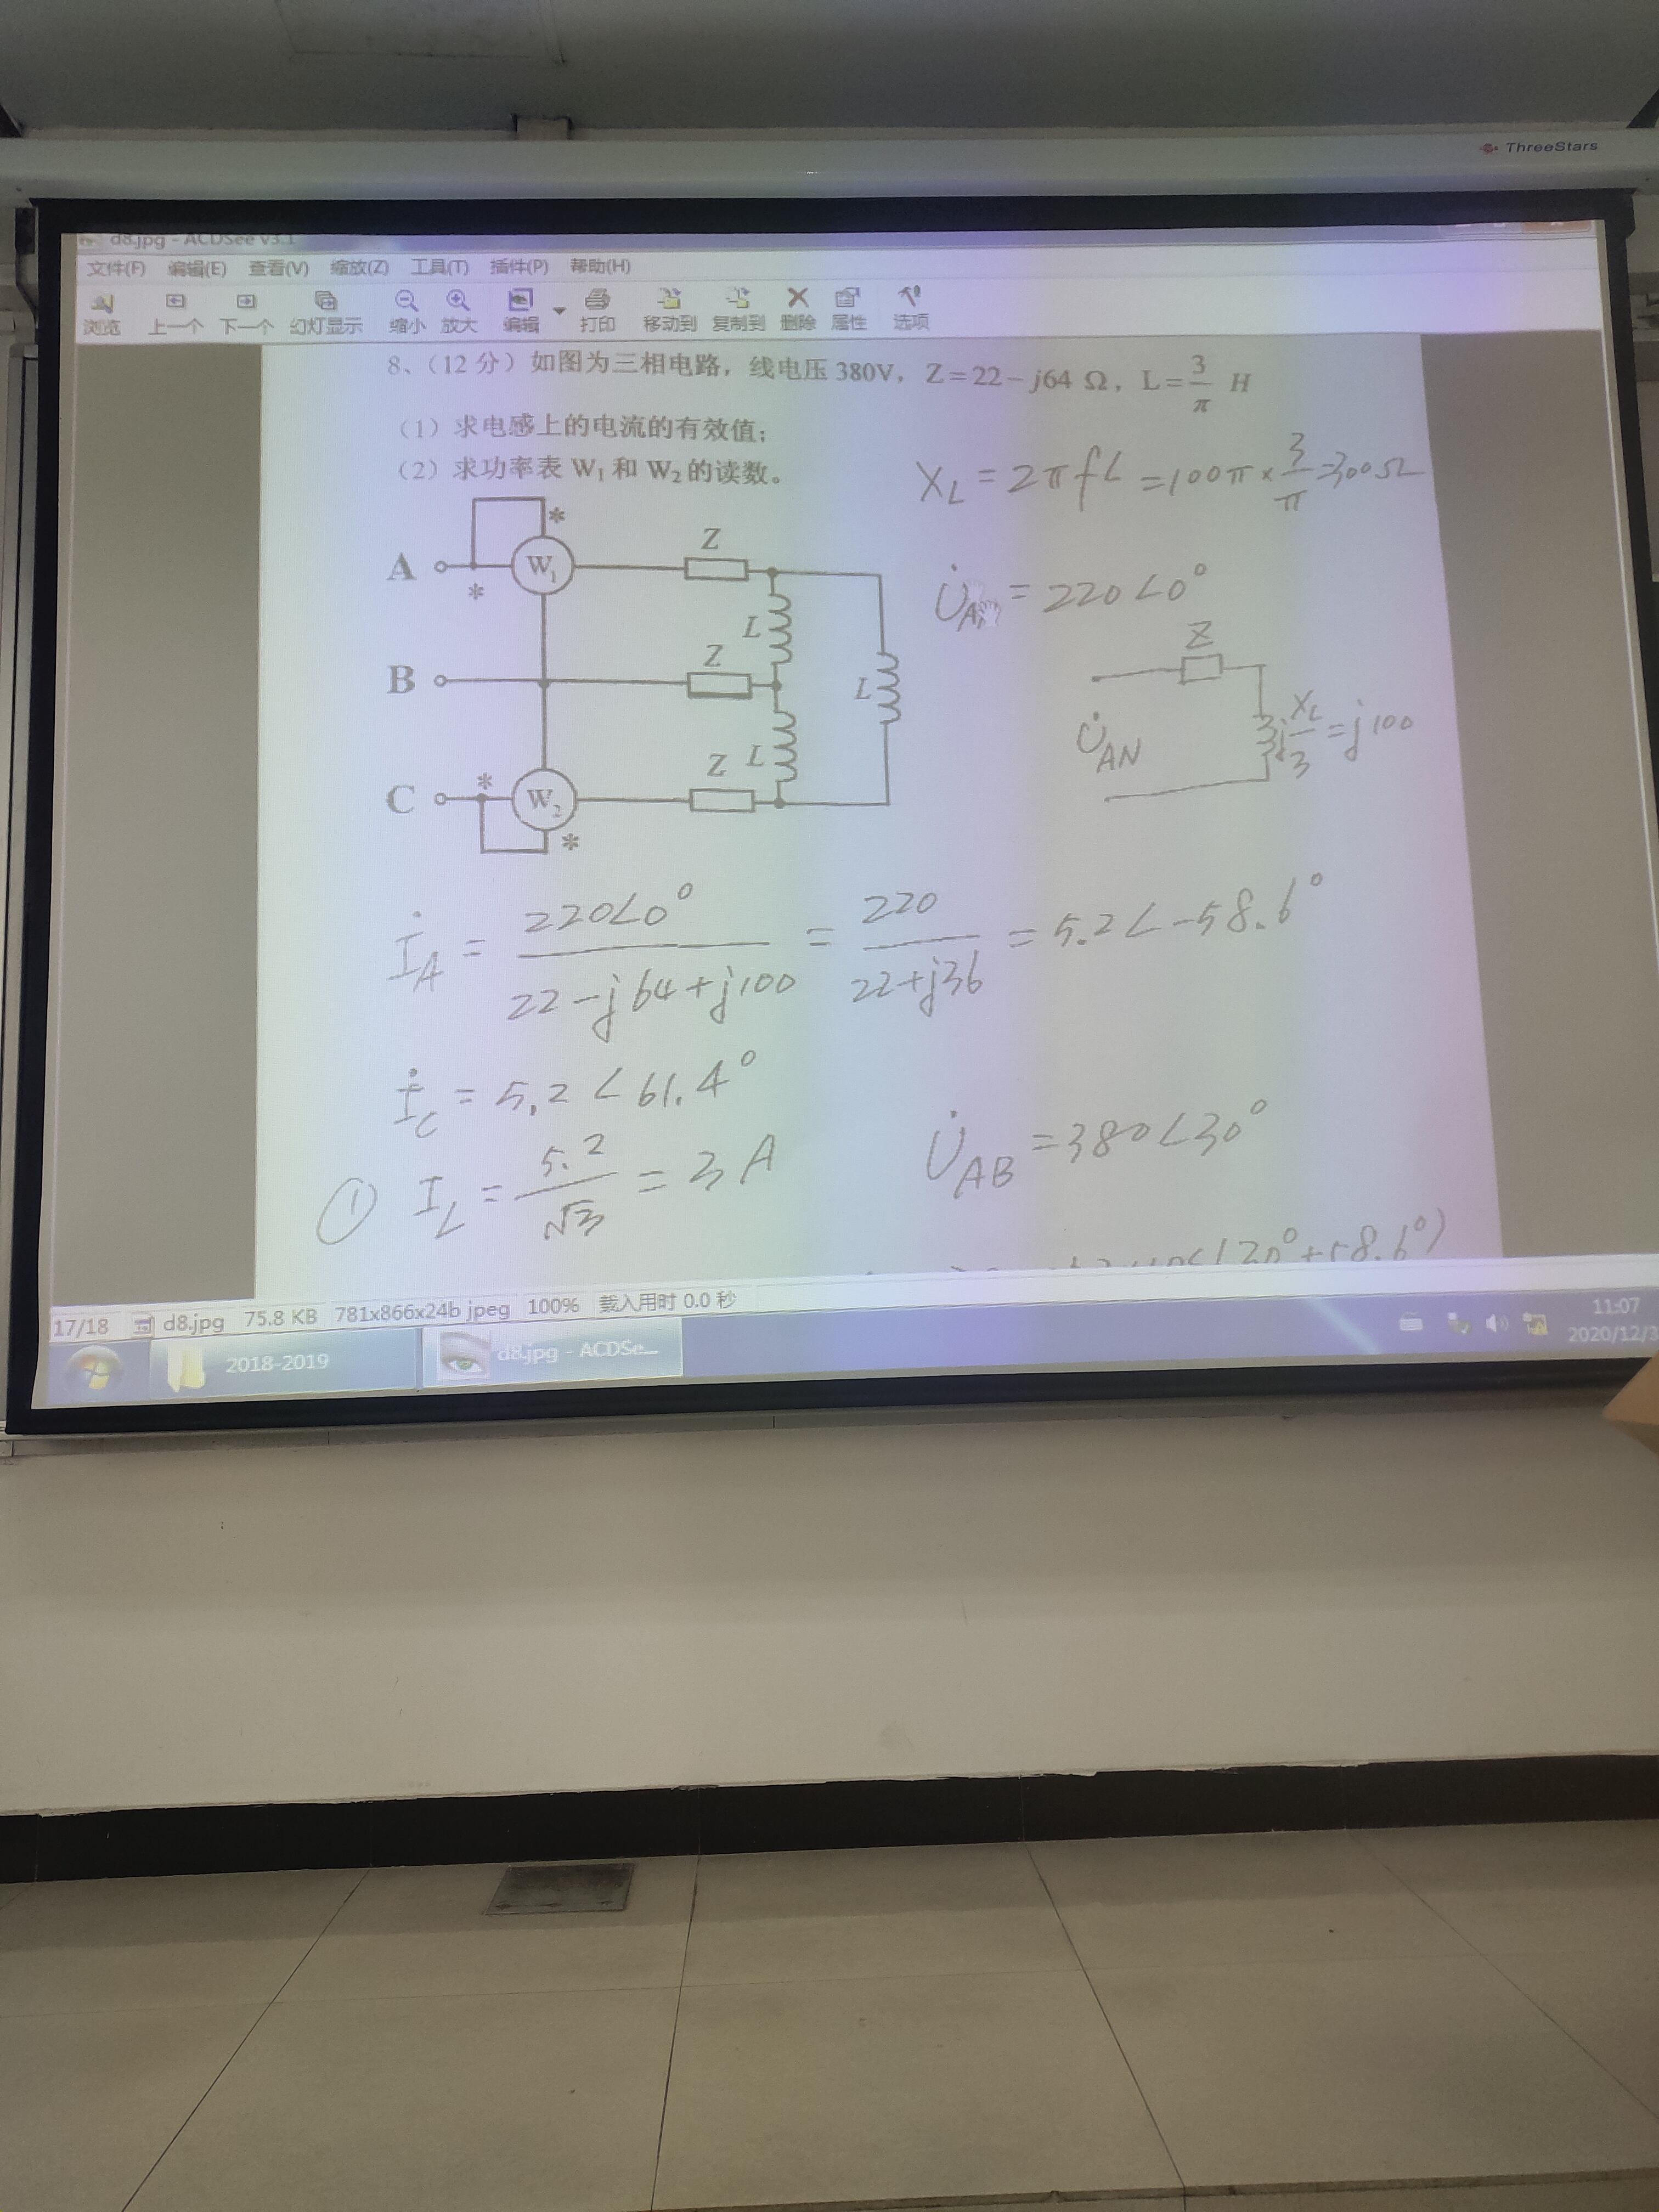 ThreeStars
d8.jpg - ACDSee v3.1
文件(F) 编辑(E) 查看(V) 缩放(Z) 工具(T) 插件(P) 帮助(H)
浏览 上一个 下一个 幻灯显示 缩小 放大 编辑 打印 移动到 复制到 删除 属性 选项
8、（12 分）如图为三相电路，线电压 380V，Z=22－j64 Ω，L=3/π H
（1）求电感上的电流的有效值；
（2）求功率表 W₁ 和 W₂ 的读数。
X_L = 2πfL = 100π × 3/π = 300Ω
* Z
A W₁
*
L
U̇_AN = 220∠0°
Z
B Z L
U̇_AN j X_L/3 = j100
* Z L
C W₂
*
İ_A = 220∠0° / 22-j64+j100 = 220 / 22+j36 = 5.2∠-58.6°
İ_C = 5.2∠61.4°
U̇_AB = 380∠30°
① I_L = 5.2/√3 = 3A
(30°+58.6°)
17/18 d8.jpg 75.8 KB 781x866x24b jpeg 100% 载入用时 0.0 秒
11:07
2018-2019 d8.jpg - ACDSe... 2020/12/3